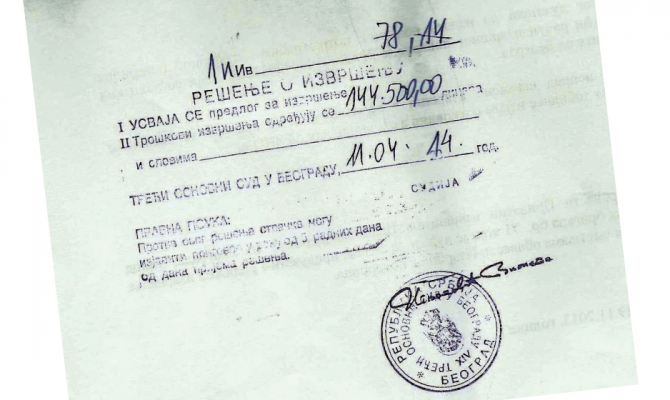 1 ИИв 78,14
РЕШЕЊЕ О ИЗВРШЕЊУ
I УСВАЈА СЕ предлог за извршење
II Трошкови извршења одређују се 144.500,00 динара
и словима
ТРЕЋИ ОСНОВНИ СУД У БЕОГРАДУ, 11.04.14. год.
СУДИЈА
ПРАВНА ПОУКА:
Против овог решења странка могу
изјавити приговор у року од 5 радних дана
од дана пријема решења.
РЕПУБЛИКА СРБИЈА
ТРЕЋИ ОСНОВНИ СУД У БЕОГРАДУ XIX
БЕОГРАД